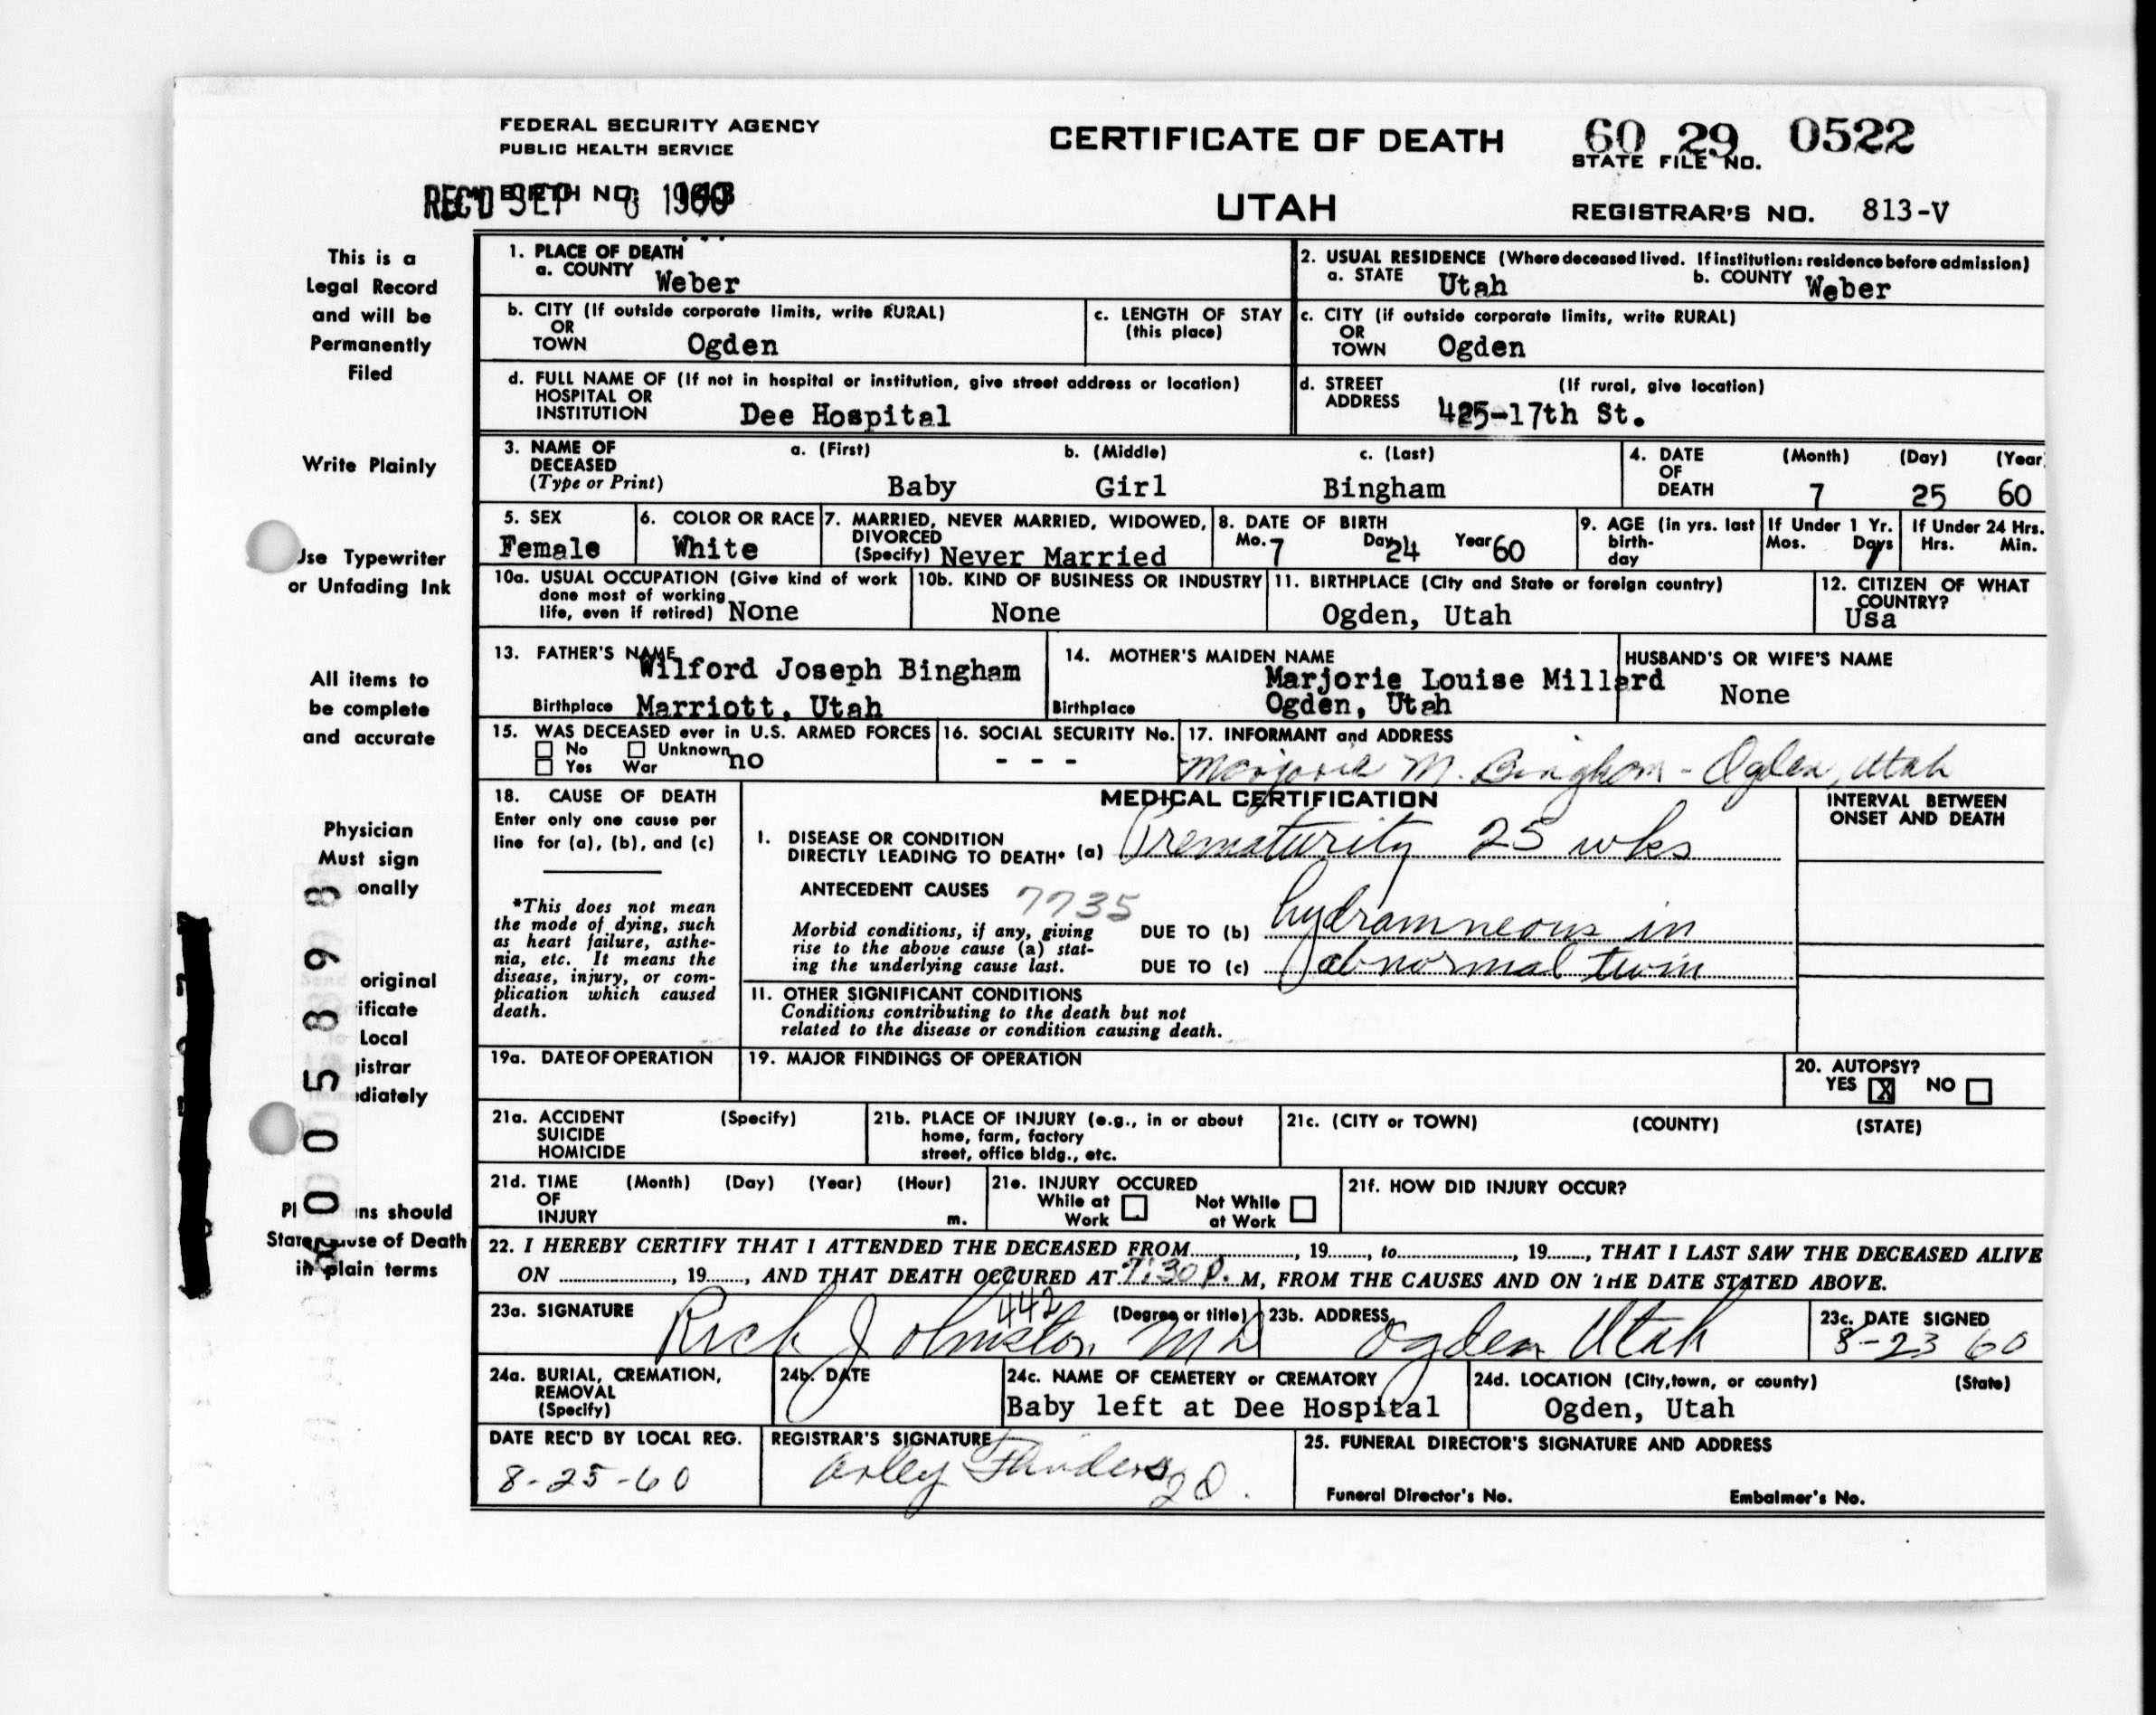 FEDERAL SECURITY AGENCY
PUBLIC HEALTH SERVICE
CERTIFICATE OF DEATH
UTAH
60 29 0522
STATE FILE NO.
REC'D SEP 6 1960
BIRTH NO.
REGISTRAR'S NO. 813-V
This is a
Legal Record
and will be
Permanently
Filed
Write Plainly
Use Typewriter
or Unfading Ink
All items to
be complete
and accurate
Physician
Must sign
onally
original
ificate
Local
istrar
diately
ns should
State use of Death
in plain terms
0005898
1. PLACE OF DEATH
a. COUNTY Weber
2. USUAL RESIDENCE (Where deceased lived. If institution: residence before admission)
a. STATE Utah b. COUNTY Weber
b. CITY (If outside corporate limits, write RURAL)
OR
TOWN Ogden
c. LENGTH OF STAY
(this place)
c. CITY (if outside corporate limits, write RURAL)
OR
TOWN Ogden
d. FULL NAME OF (If not in hospital or institution, give street address or location)
HOSPITAL OR
INSTITUTION Dee Hospital
d. STREET (If rural, give location)
ADDRESS 425-17th St.
3. NAME OF a. (First) b. (Middle) c. (Last)
DECEASED
(Type or Print) Baby Girl Bingham
4. DATE (Month) (Day) (Year
OF
DEATH 7 25 60
5. SEX
Female
6. COLOR OR RACE
White
7. MARRIED, NEVER MARRIED, WIDOWED,
DIVORCED
(Specify) Never Married
8. DATE OF BIRTH
Mo. 7 Day 24 Year 60
9. AGE (in yrs. last
birth-
day
If Under 1 Yr.
Mos. Days 1
If Under 24 Hrs.
Hrs. Min.
10a. USUAL OCCUPATION (Give kind of work
done most of working
life, even if retired) None
10b. KIND OF BUSINESS OR INDUSTRY
None
11. BIRTHPLACE (City and State or foreign country)
Ogden, Utah
12. CITIZEN OF WHAT
COUNTRY?
Usa
13. FATHER'S NAME
Wilford Joseph Bingham
Birthplace Marriott, Utah
14. MOTHER'S MAIDEN NAME
Marjorie Louise Millard
Birthplace Ogden, Utah
HUSBAND'S OR WIFE'S NAME
None
15. WAS DECEASED ever in U.S. ARMED FORCES
No Unknown no
Yes War
16. SOCIAL SECURITY No.
- - -
17. INFORMANT and ADDRESS
Marjorie M. Bingham - Ogden, Utah
18. CAUSE OF DEATH
Enter only one cause per
line for (a), (b), and (c)
*This does not mean
the mode of dying, such
as heart failure, asthe-
nia, etc. It means the
disease, injury, or com-
plication which caused
death.
MEDICAL CERTIFICATION
INTERVAL BETWEEN
ONSET AND DEATH
I. DISEASE OR CONDITION
DIRECTLY LEADING TO DEATH* (a) Prematurity 25 wks
ANTECEDENT CAUSES 7735
Morbid conditions, if any, giving
rise to the above cause (a) stat-
ing the underlying cause last.
DUE TO (b) hydramneous in
DUE TO (c) abnormal twin
11. OTHER SIGNIFICANT CONDITIONS
Conditions contributing to the death but not
related to the disease or condition causing death.
19a. DATE OF OPERATION
19. MAJOR FINDINGS OF OPERATION
20. AUTOPSY?
YES X NO
21a. ACCIDENT (Specify)
SUICIDE
HOMICIDE
21b. PLACE OF INJURY (e.g., in or about
home, farm, factory
street, office bldg., etc.
21c. (CITY or TOWN) (COUNTY) (STATE)
21d. TIME (Month) (Day) (Year) (Hour)
OF
INJURY m.
21e. INJURY OCCURED
While at Work
Not While at Work
21f. HOW DID INJURY OCCUR?
22. I HEREBY CERTIFY THAT I ATTENDED THE DECEASED FROM..., 19..., to..., 19..., THAT I LAST SAW THE DECEASED ALIVE
ON ..., 19..., AND THAT DEATH OCCURED AT 7:30 p. M, FROM THE CAUSES AND ON THE DATE STATED ABOVE.
23a. SIGNATURE (Degree or title)
442
Rich Johnston MD
23b. ADDRESS
Ogden Utah
23c. DATE SIGNED
8-23 60
24a. BURIAL, CREMATION,
REMOVAL
(Specify)
24b. DATE
24c. NAME OF CEMETERY or CREMATORY
Baby left at Dee Hospital
24d. LOCATION (City, town, or county) (State)
Ogden, Utah
DATE REC'D BY LOCAL REG.
8-25-60
REGISTRAR'S SIGNATURE
Orley Flinders
25. FUNERAL DIRECTOR'S SIGNATURE AND ADDRESS
Funeral Director's No. Embalmer's No.